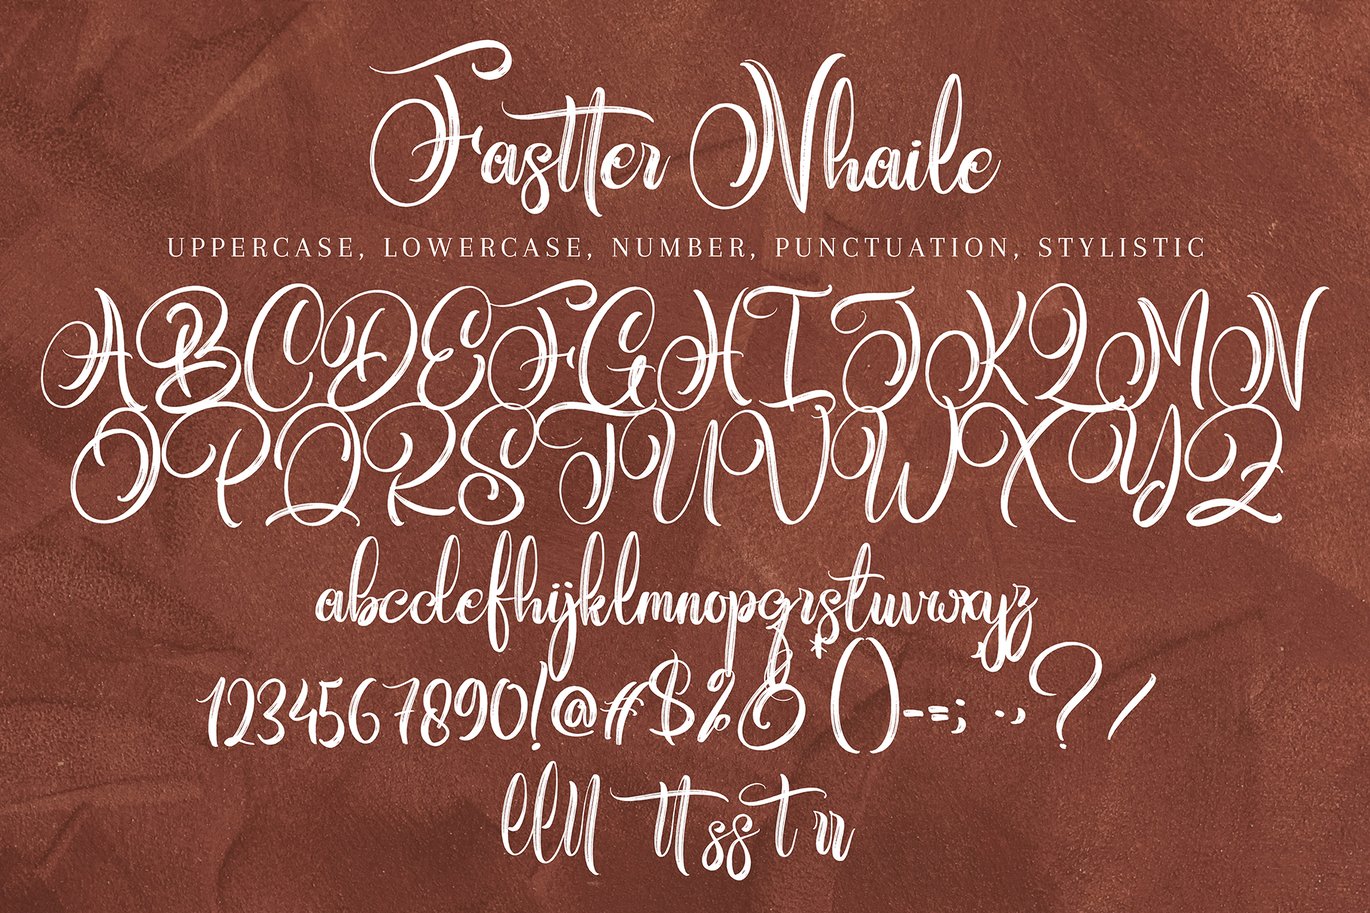 Fastter Nhaile
UPPERCASE, LOWERCASE, NUMBER, PUNCTUATION, STYLISTIC
ABCDEFGHIJKLMN
OPQRSTUVWXYZ
abcdefhijklmnopqrstuvwxyz
1234567890!@#$%&*()-=;:,?/